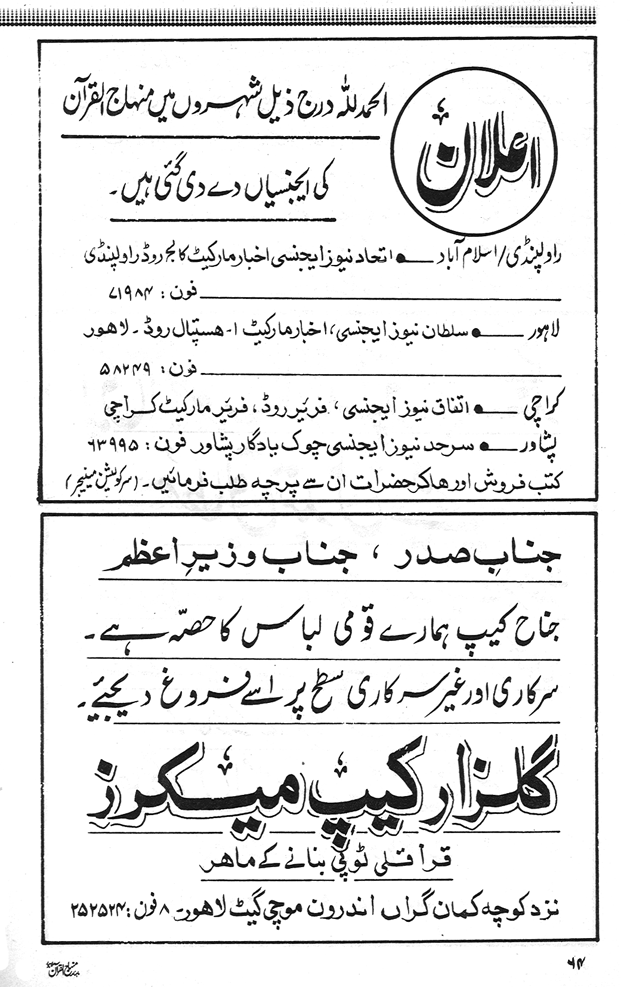 اعلان
الحمد للہ درج ذیل شہروں میں منہاج القرآن
کی ایجنسیاں دے دی گئی ہیں۔
راولپنڈی/اسلام آباد ــــ● اتحاد نیوز ایجنسی اخبار مارکیٹ کالج روڈ راولپنڈی
ــــــــ فون: ۷۱۹۸۴
لاہور ــــ● سلطان نیوز ایجنسی، اخبار مارکیٹ ۱-ھسپتال روڈ۔ لاھور
ــــــــ فون: ۵۸۲۴۹
کراچی ــــ● اتفاق نیوز ایجنسی، فریر روڈ، فریر مارکیٹ کراچی
پشاور ــــ● سرحد نیوز ایجنسی چوک یادگار پشاور فون: ۶۳۹۹۵
کتب فروش اور ھاکر حضرات ان سے پرچہ طلب فرمائیں۔ (سرکولیشن مینیجر)
جنابِ صدر ، جناب وزیرِ اعظم
جناح کیپ ہمارے قومی لباس کا حصّہ ہے۔
سرکاری اور غیر سرکاری سطح پر اسے فروغ دیجئیے۔
گلزار کیپ میکرز
قراقلی ٹوپی بنانے کے ماھر
نزد کوچہ کمان گراں اندرون موچی گیٹ لاھور۔ ۸ فون: ۲۵۲۵۲۴
۶۴